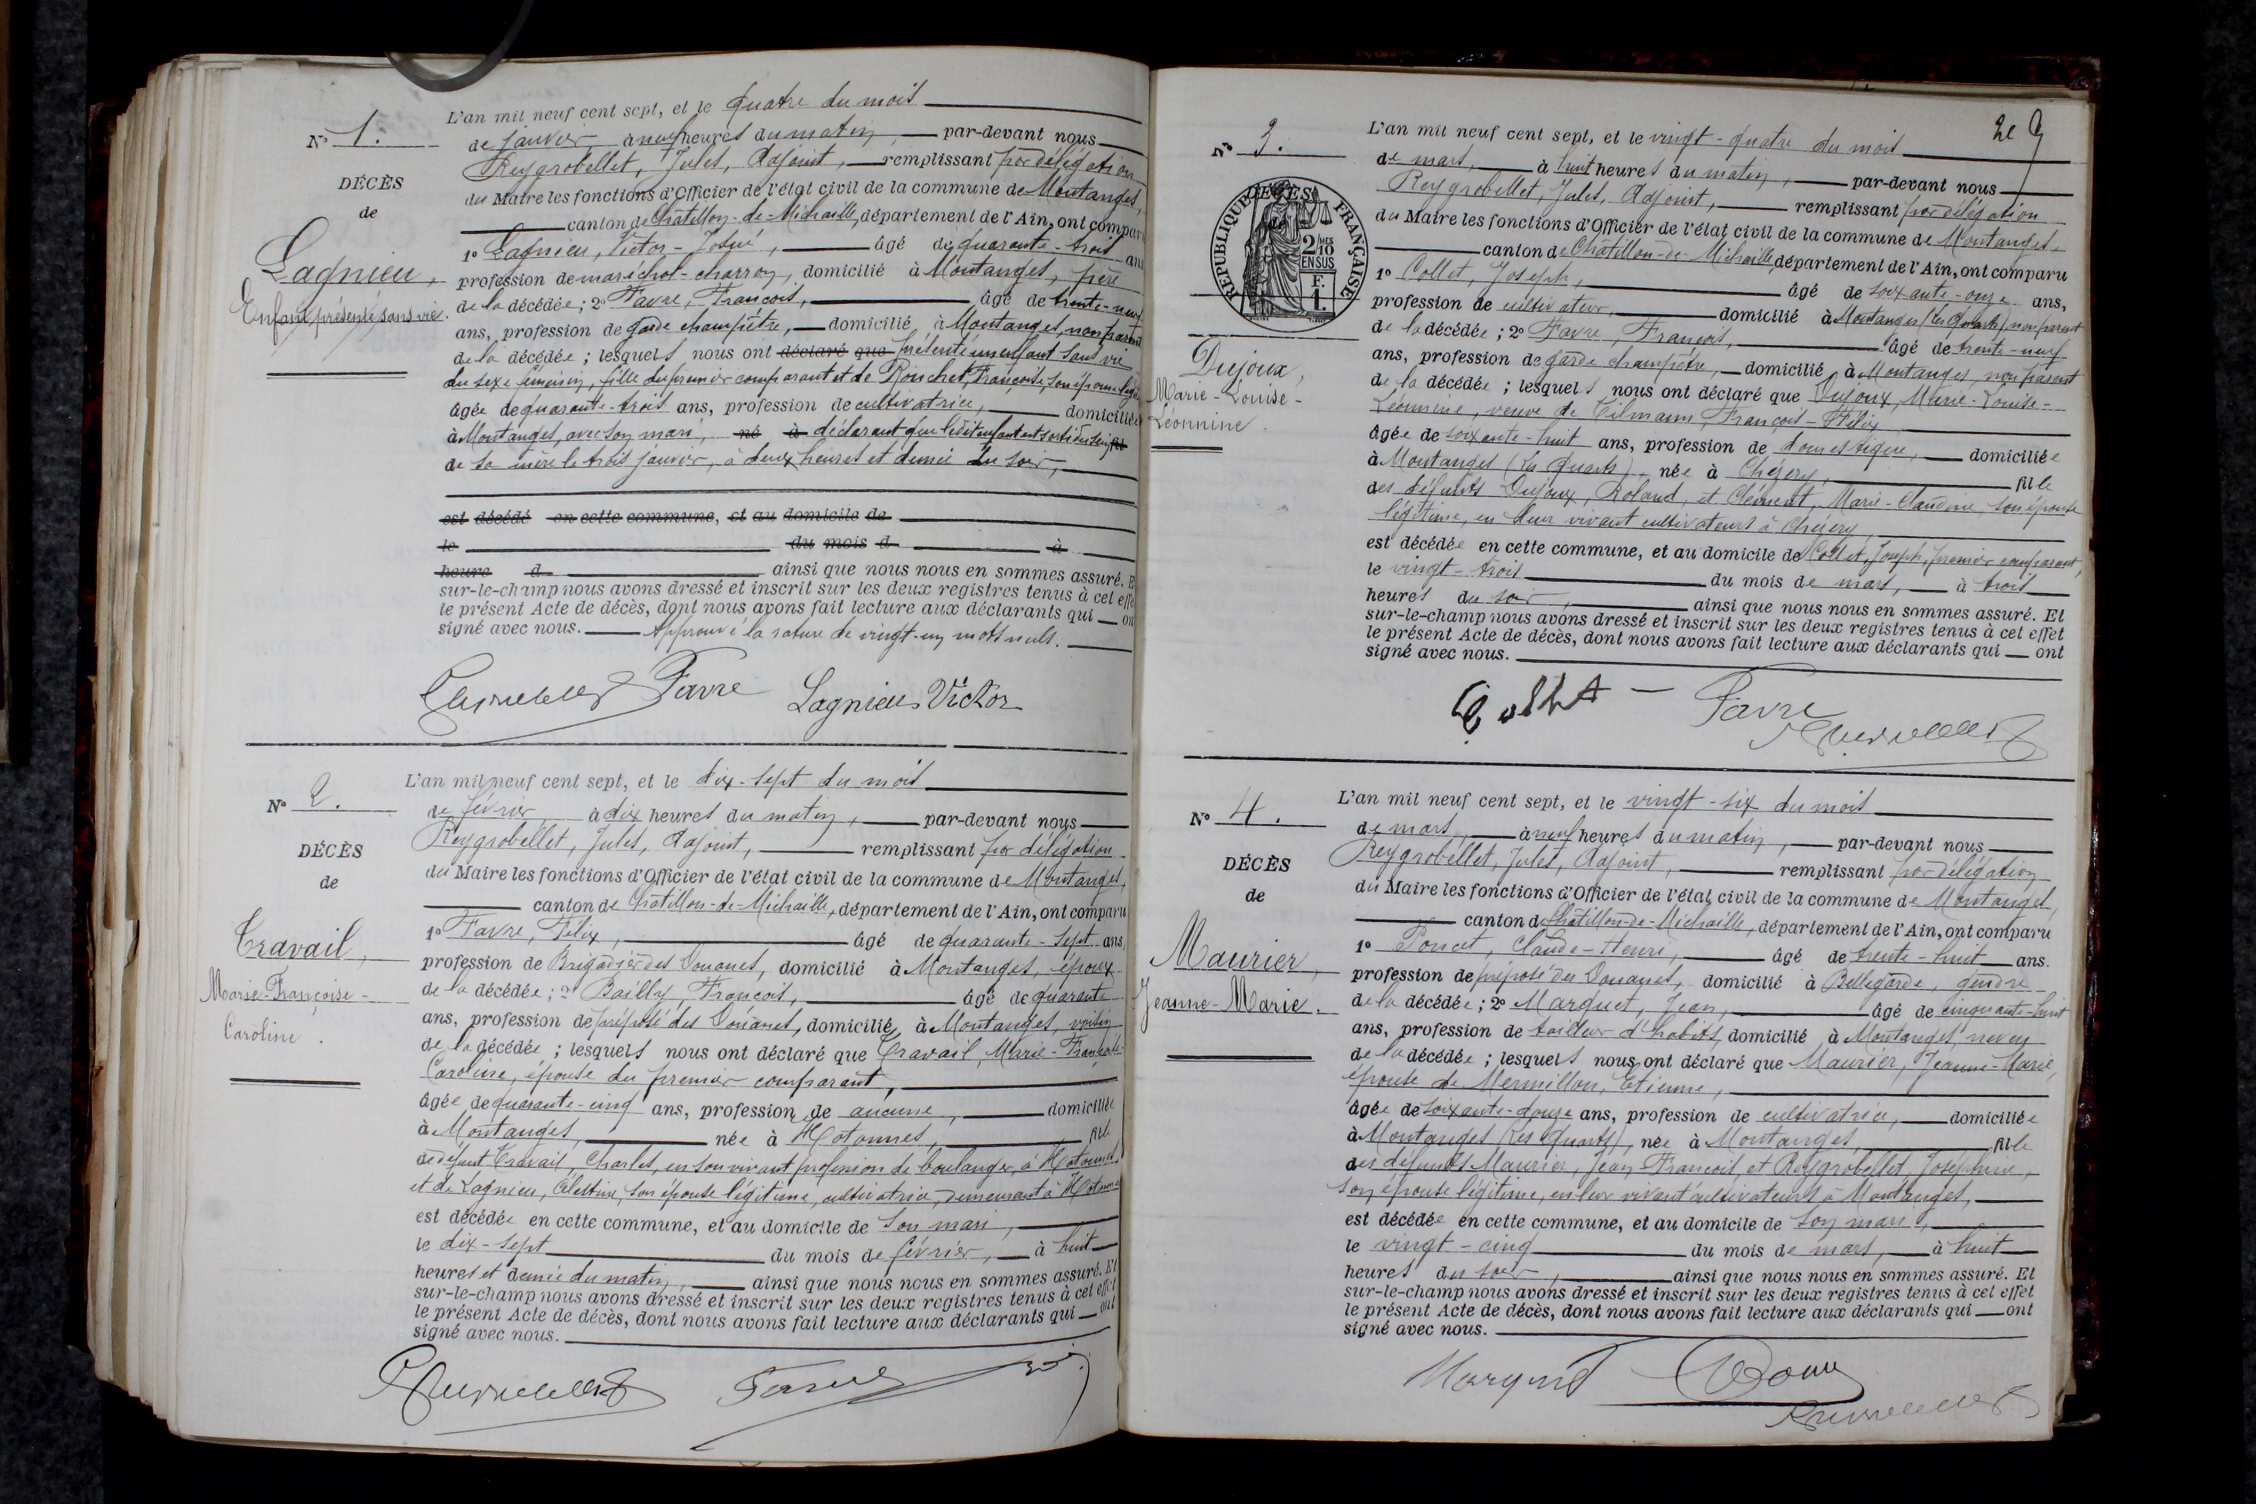 L'an mil neuf cent sept, et le quatre du mois
N° 1. de janvier à neuf heures du matin, par-devant nous
Reygrobellet, Jules, Adjoint, remplissant par délégation
DÉCÈS
du Maire les fonctions d'Officier de l'état civil de la commune de Montanges,
de
canton de Châtillon-de-Michaille, département de l'Ain, ont comparu
1° Lagnieu, Victor-Josué, âgé de quarante-trois ans
Lagnieu,
profession de maréchal-charron, domicilié à Montanges, père
Enfant présenté sans vie.
de la décédée; 2° Favre, François, âgé de trente-neuf
ans, profession de garde champêtre, domicilié à Montanges non parent
de la décédée; lesquels nous ont déclaré que présenté un enfant sans vie
du sexe féminin, fille du premier comparant et de Ponchet, Françoise, son épouse légitime
âgée de quarante-trois ans, profession de cultivatrice, domiciliée
à Montanges, avec son mari, né à déclarant que ledit enfant est sorti du sein fil
de sa mère le trois janvier, à deux heures et demie du soir,
est décédé en cette commune, et au domicile de
le du mois d à
heure d ainsi que nous nous en sommes assuré. Et
sur-le-champ nous avons dressé et inscrit sur les deux registres tenus à cet effet
le présent Acte de décès, dont nous avons fait lecture aux déclarants qui ont
signé avec nous. Approuvé la rature de vingt-un mots nuls.
Favre Lagnieu Victor
L'an mil neuf cent sept, et le dix-sept du mois
N° 2. de février à dix heures du matin, par-devant nous
Reygrobellet, Jules, Adjoint, remplissant par délégation
DÉCÈS
du Maire les fonctions d'Officier de l'état civil de la commune de Montanges,
de
canton de Châtillon-de-Michaille, département de l'Ain, ont comparu
1° Favre, Félix, âgé de quarante-sept ans,
Travail,
profession de Brigadier des Douanes, domicilié à Montanges, époux
Marie-Françoise-
de la décédée; 2° Bailly, François, âgé de quarante
ans, profession de préposé des Douanes, domicilié à Montanges, voisin
Caroline.
de la décédée; lesquels nous ont déclaré que Travail, Marie-Françoise-
Caroline, épouse du premier comparant,
âgée de quarante-cinq ans, profession de aucune, domiciliée
à Montanges, née à Hotonnes, fille
de défunt Travail, Charles, en son vivant profession de boulanger, à Hotonnes
et de Lagnieu, Célestine, son épouse légitime, cultivatrice, demeurant à Hotonnes
est décédée en cette commune, et au domicile de son mari,
le dix-sept du mois de février, à huit
heures et demie du matin, ainsi que nous nous en sommes assuré. Et
sur-le-champ nous avons dressé et inscrit sur les deux registres tenus à cet effet
le présent Acte de décès, dont nous avons fait lecture aux déclarants qui ont
signé avec nous.
N° 3. L'an mil neuf cent sept, et le vingt-quatre du mois
de mars, à huit heures du matin, par-devant nous
Reygrobellet, Jules, Adjoint, remplissant par délégation
RÉPUBLIQUE FRANÇAISE
DÉCÈS
de
2/10 MES
EN SUS
F.
1.
du Maire les fonctions d'Officier de l'état civil de la commune de Montanges,
canton de Châtillon-de-Michaille, département de l'Ain, ont comparu
1° Collet, Joseph, âgé de soixante-onze ans,
profession de cultivateur, domicilié à Montanges (les Quarts) non parent
de la décédée; 2° Favre, François, âgé de trente-neuf
Dujoux,
ans, profession de garde champêtre, domicilié à Montanges, non parent
Marie-Louise-
de la décédée; lesquels nous ont déclaré que Dujoux, Marie-Louise-
Léonnine.
Léonnine, veuve de Tilmann, François-Félix
âgée de soixante-huit ans, profession de domestique, domiciliée
à Montanges (les Quarts), née à Chézery, fille
des défunts Dujoux, Roland, et Clément, Marie-Claudine son épouse
légitime, en leur vivant cultivateurs à Chézery
est décédée en cette commune, et au domicile de Collet, Joseph, premier comparant,
le vingt-trois du mois de mars, à trois
heures du soir, ainsi que nous nous en sommes assuré. Et
sur-le-champ nous avons dressé et inscrit sur les deux registres tenus à cet effet
le présent Acte de décès, dont nous avons fait lecture aux déclarants qui ont
signé avec nous.
Collet Favre
N° 4. L'an mil neuf cent sept, et le vingt-six du mois
de mars, à neuf heures du matin, par-devant nous
Reygrobellet, Jules, Adjoint, remplissant par délégation
DÉCÈS
du Maire les fonctions d'Officier de l'état civil de la commune de Montanges,
de
canton de Châtillon-de-Michaille, département de l'Ain, ont comparu
1° Poncet, Claude-Henri, âgé de trente-huit ans.
Maurier,
profession de préposé des Douanes, domicilié à Bellegarde, gendre
Jeanne-Marie.
de la décédée; 2° Marquet, Jean, âgé de cinquante-huit
ans, profession de tailleur d'habits, domicilié à Montanges, neveu
de la décédée; lesquels nous ont déclaré que Maurier, Jeanne-Marie,
épouse de Mermillon, Etienne,
âgée de soixante-douze ans, profession de cultivatrice, domiciliée
à Montanges (Les Quarts), née à Montanges, fille
des défunts Maurier, Jean-François, et Reygrobellet, Joséphine,
son épouse légitime, en leur vivant cultivateurs à Montanges,
est décédée en cette commune, et au domicile de son mari,
le vingt-cinq du mois de mars, à huit
heures du soir, ainsi que nous nous en sommes assuré. Et
sur-le-champ nous avons dressé et inscrit sur les deux registres tenus à cet effet
le présent Acte de décès, dont nous avons fait lecture aux déclarants qui ont
signé avec nous.
Marquet